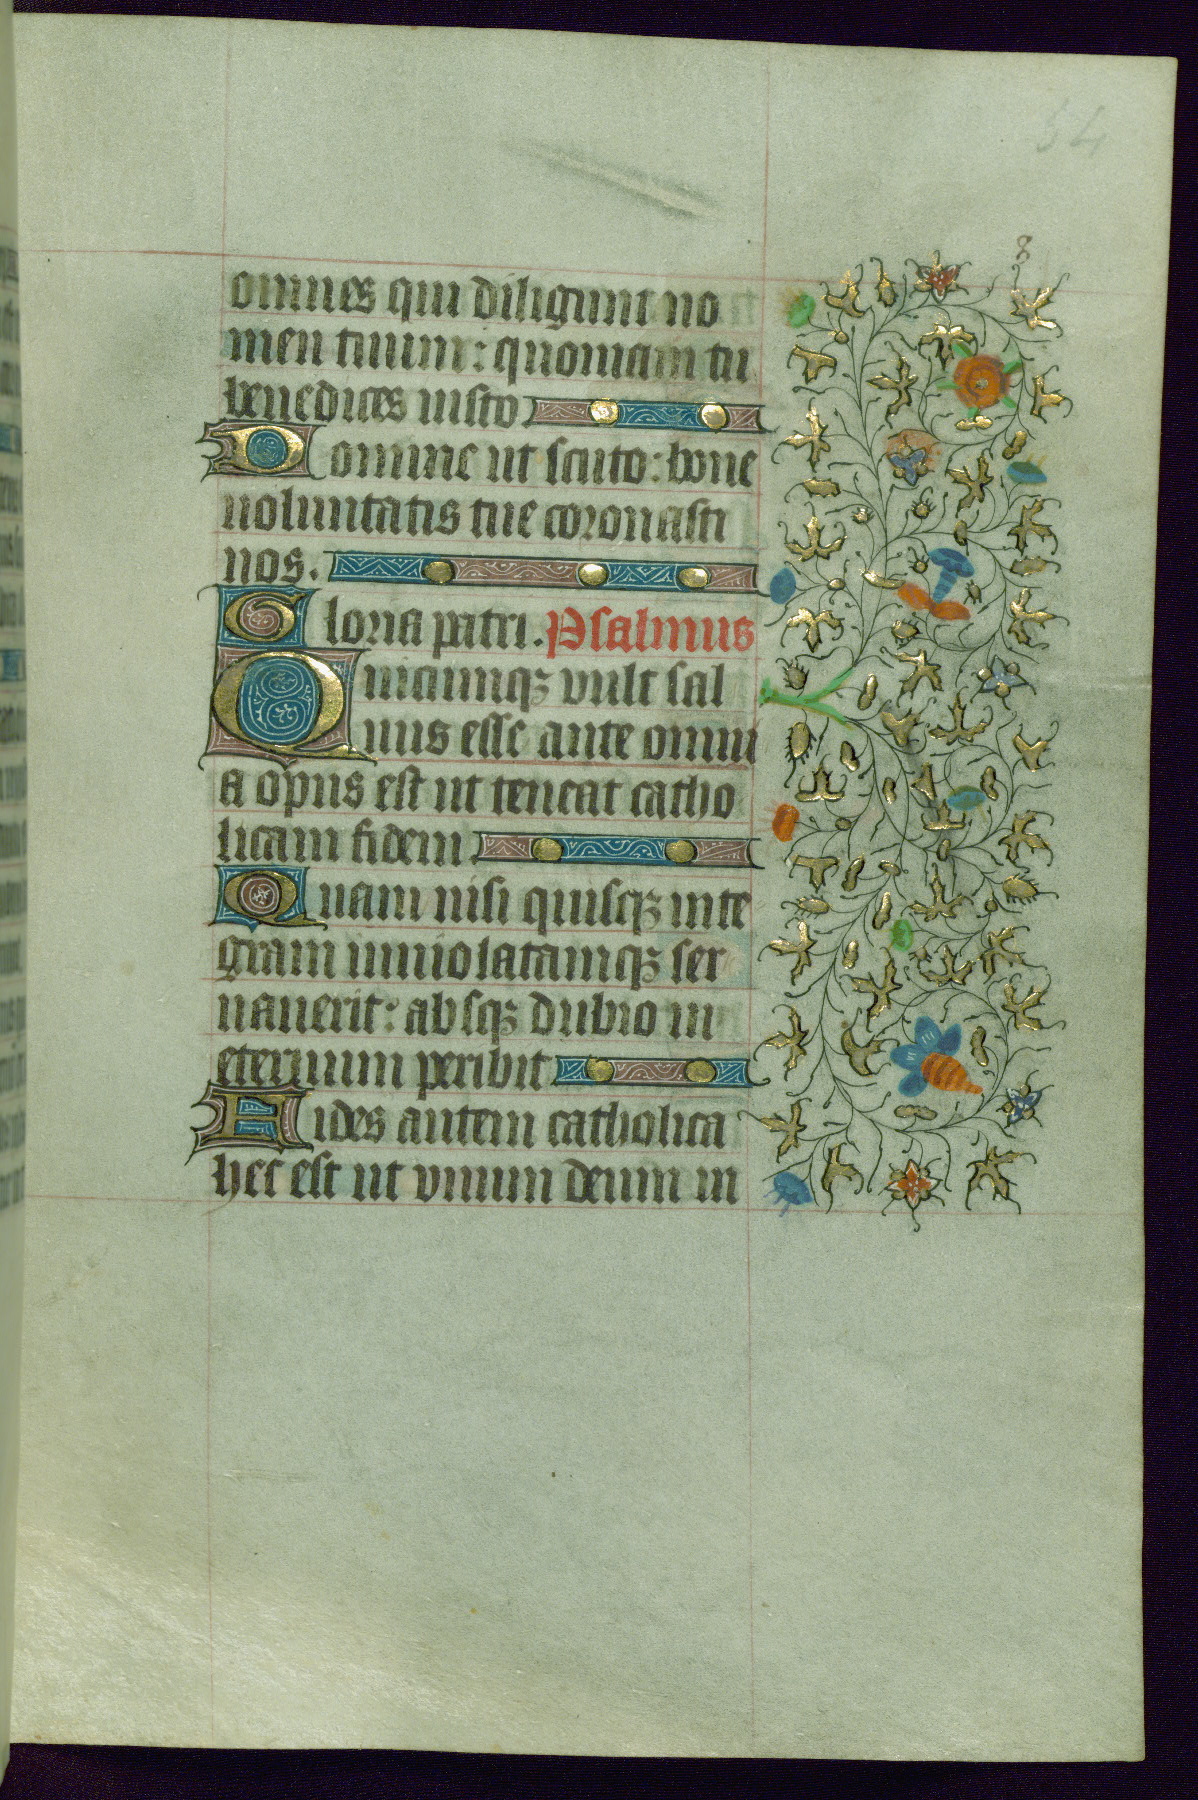 54
8
omnes qui diligunt no
men tuum: quoniam tu
benedices iusto
Domine ut scuto: bone
uoluntatis tue coronasti
nos.
Gloria patri. Psalmus
Quicumqꝫ vult sal
uus esse ante omni
a opus est ut teneat catho
licam fidem
Quam nisi quisqꝫ inte
gram inuiolatamqꝫ ser
uauerit: absqꝫ dubio in
eternum peribit
Fides autem catholica
hec est ut vnum deum in